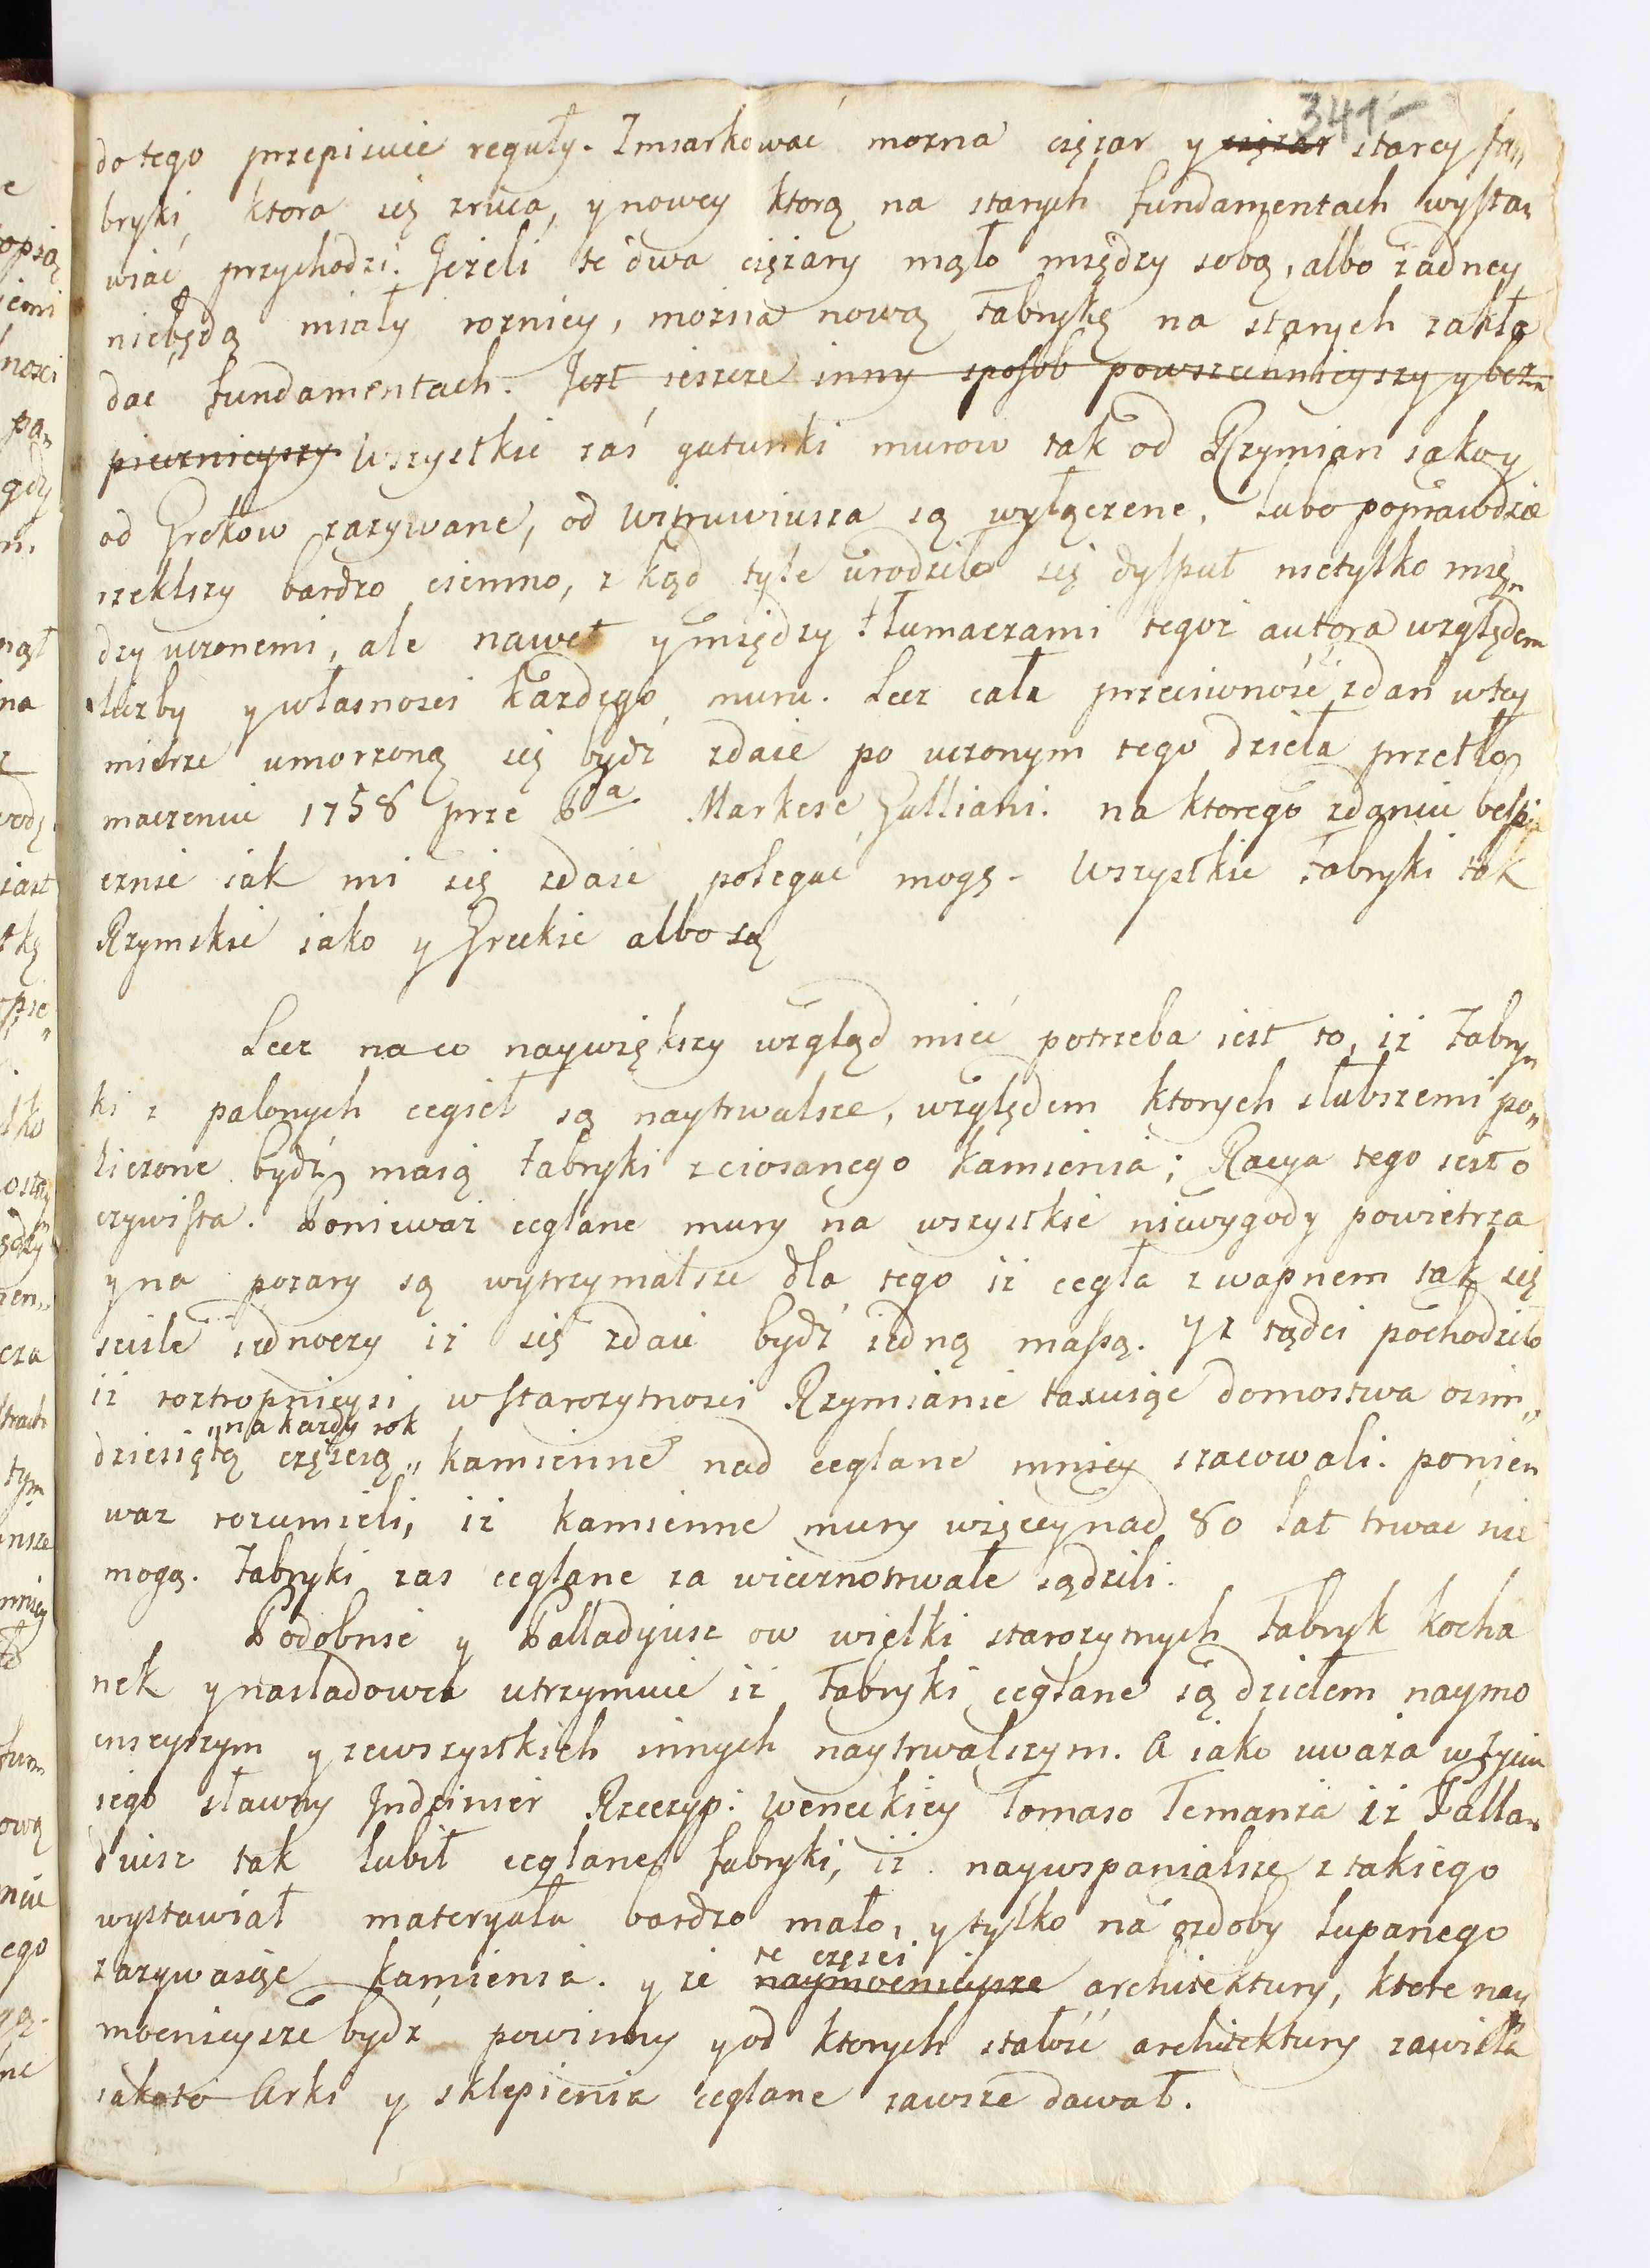 341-
do tego przepisuie reguły. Zmiarkować mozna cięzar y cięzar starey fa„
bryki ktora się zruca, y nowey ktorą na starych fundamentach wysta„
wiać przychodzi. Jezeli te dwa cięzary mało między sobą, albo zadney
niebędą miały roznicy, mozna nową fabrykę na starych zakła
dać fundamentach. Jest ieszcze inny sposob powszechnieyszy y bez„
piecznieyszy Wszystkie zaś gatunki murow tak od Rzymian iako y
od Grekow zazywane, od Witruwiusza są wyłączene, lubo poprawdzie
rzekłszy bardzo ciemno, z kąd tyle urodziło się dysput nietylko mię„
dzy uczonemi, ale nawet y między tłumaczami tegoż autora względem
liczby y własnosci kazdego muru. Lecz cała przeciwność zdań wtey
mierze umorzoną się bydź zdaie po uczonym tego dzieła przetło
maczeniu 1758 prze Pa Markese Galliani. na ktorego zdaniu bespie
cznie iak mi się zdaie polegać mogę. Wszystkie fabryki tak
Rzymskie iako y Greckie albo są
Lecz na co naywiększy wzgląd mieć potrzeba iest to, iz fabry„
ki z palonych cegieł są naytrwalsze, względem ktorych słabszemi po„
liczone bydź maią fabryki z ciosanego kamienia; Racya tego iest o
czywista. Poniewaz ceglane mury na wszystkie niewygody powietrza
y na pozary są wytrzymalsze dla tego iz cegła z wapnem tak się
sciśle iednoczy iz się zdaie bydź iedną massą. Y z tądci pochodziło
iz roztropnieysi w starozytnosci Rzymianie taxuiąc domostwa osim„
„na kazdy rok
dziesiątą częścią „ kamienne nad ceglane mniey szacowali. ponie„
waz rozumieli, iz kamienne mury więcey nad 80 lat trwać nie
mogą. Fabryki zas ceglane za wiecznotrwałe sądzili.
Podobnie y Palladyiusz ow wielki starozytnych Fabryk kocha
nek y nasladowca utrzymuie iz fabryki ceglane są dziełem naymo
cnieyszym y ze wszystkich innych naytrwalszym. A iako uważa w życiu
iego sławny Indzinier Rzeczyp: Weneckiey Tomaso Temanza iz Palla„
diusz tak lubił ceglane fabryki, iz naywspanialsze z takiego
wystawiał materyału bardzo mało, y tylko na ozdoby łupanego
te części
zazywaiąc kamienia. y że naymocnieysze architektury, ktore nay
mocnieysze bydź powinny y od ktorych stałość architektury zawisła
iakoto Arki y sklepienia ceglane zawsze dawał.